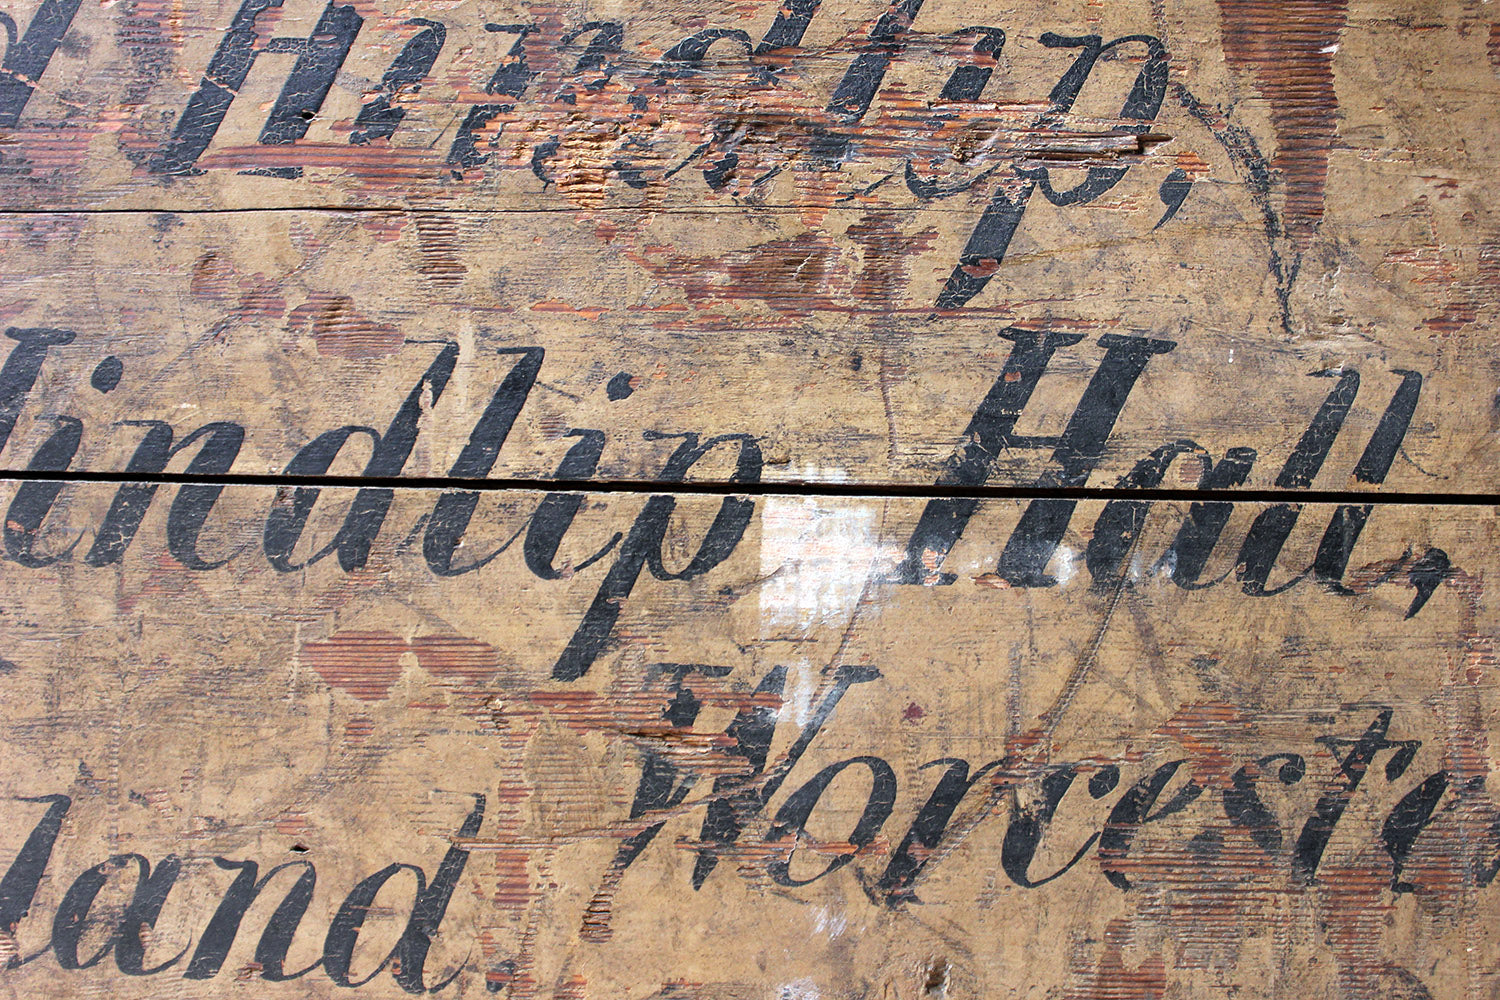 Hindlip,
Hindlip Hall,
Worceste
land.